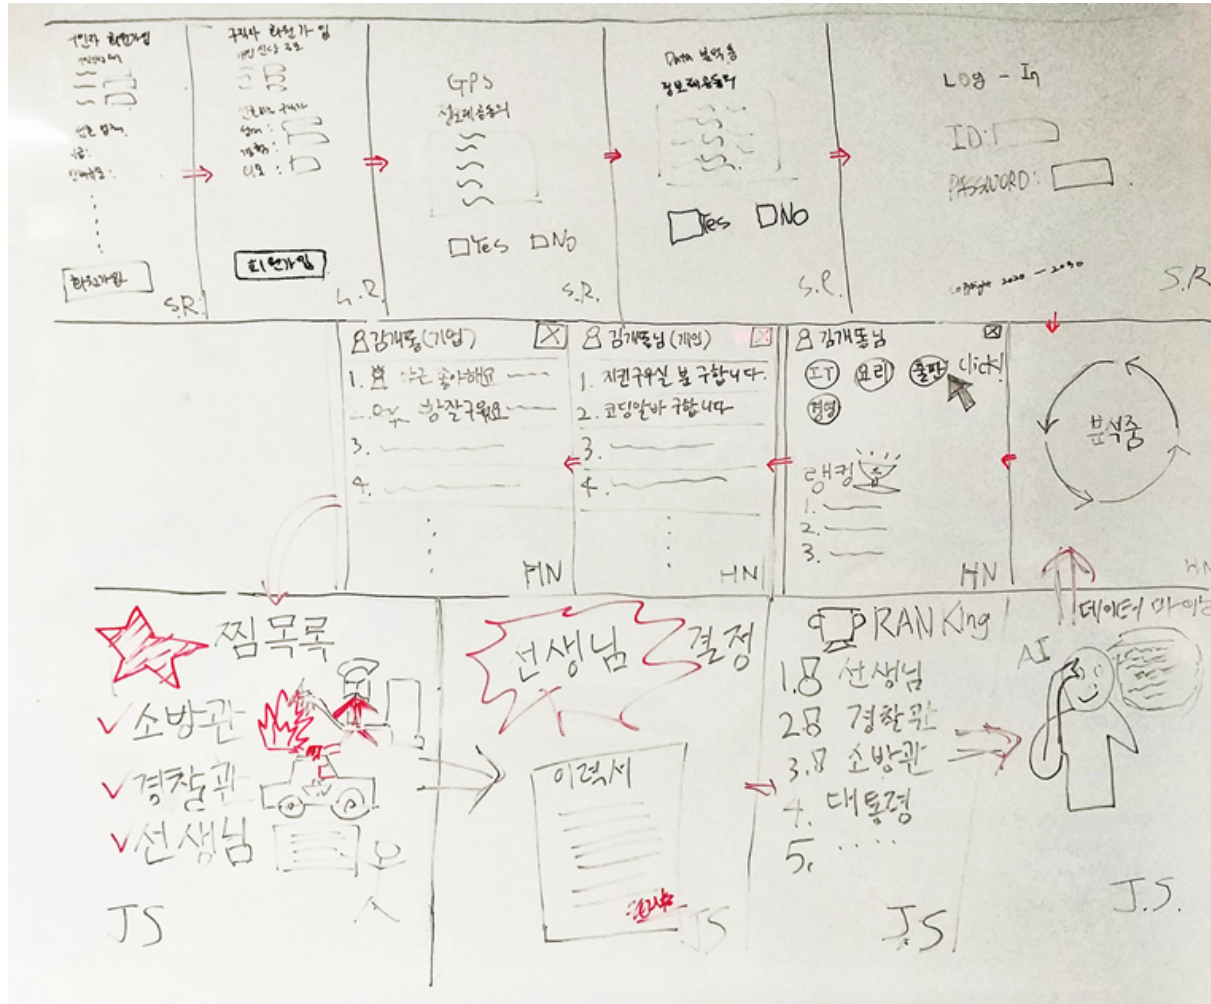 구인자 회원가입
회원가입
S.R.
구직자 회원가입
개인신상정보
경험:
회원가입
S.R.
GPS
정보제공동의
Yes No
S.R.
Data 분석용
정보제공동의
Yes No
S.R.
Log - In
ID:
PASSWORD:
copyright 2020 - 2030
S.R
김개똥(기업)
1.
2.
3.
4.
HN
김개똥님(개인)
1. 치킨구우실 분 구합니다.
2. 코딩알바 구합니다
3.
4.
HN
김개똥님
IT 요리 출판 Click!
경영
랭킹
1.
2.
3.
HN
분석중
HN
찜목록
소방관
경찰관
선생님
JS
선생님 결정
이력서
JS
RANKing
1. 선생님
2. 경찰관
3. 소방관
4. 대통령
5. ....
J.S
데이터 마이닝
AI
J.S.